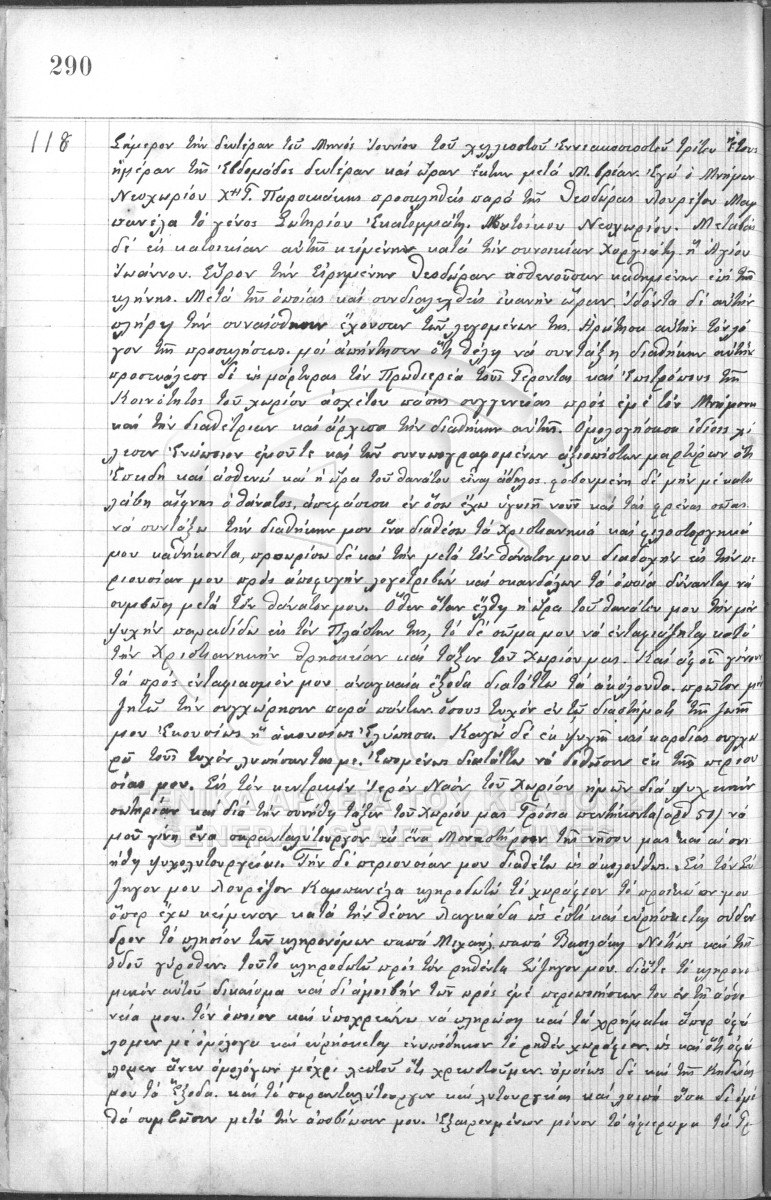 290
118
Σήμερον τὴν δευτέραν τοῦ Μηνὸς Ἰουνίου τοῦ χιλλιοστοῦ ἐννεακοσιοστοῦ τρίτου ἔτους
ἡμέραν τῆς ἑβδομάδος δευτέραν καὶ ὥραν ἕκτην μετὰ Μ.βρίαν. Ἐγὼ ὁ Μνήμων
Νεοχωρίου Χ΄΄Γ. Παρασκευᾶς προσκληθεὶς παρὰ τῆς Θεοδώρας Λουρέζου Καμ
πανέλα τὸ γένος Σωτηρίου Ἑκατομμάτη. Κατοίκου Νεοχωρίου. Μεταβὰς
δὲ εἰς κατοικίαν αὐτῆς κειμένην κατὰ τὴν συνοικίαν Χοργιάτη ἢ Ἁγίου
Ἰωάννου. Εὗρον τὴν εἰρημένην Θεοδώραν ἀσθενοῦσαν καθημένην ἐπὶ τῆς
κλήνης. Μετὰ τῆς ὁποίας καὶ συνδιαλεχθεὶς ἱκανὴν ὥραν ἰδόντα δὲ αὐτὴν
πλήρη τὴν συναίσθησιν ἔχουσαν τῶν λεγομένων της. Ἠρώτησα αὐτὴν τὸν λό
γον τῆς προσκλήσεως. μοὶ ἀπήντησεν ὅτι θέλει νὰ συντάξῃ διαθήκην αὐτῆς
προσεκάλεσε δὲ ὡς μάρτυρας τὸν Πρωθιερέα τοὺς Γέροντας καὶ Ἐπιτρόπους τῆς
Κοινότητος τοῦ χωρίου ἀσχέτου πάσης συγγενείας πρὸς ἐμὲ τὸν Μνήμονα
καὶ τὴν διαθέτριαν καὶ ἄρχισα τὴν διαθήκην αὐτῆς. Ὁμολογήσασα ἰδίοις χεί
λεσιν ἐνώπιον ἐμοῦτε καὶ τῶν συνυπογραφομένων ἀξιοπίστων μαρτύρων ὅτι
Ἐπειδὴ καὶ ἀσθενῶ καὶ ἡ ὥρα τοῦ θανάτου εἶναι ἄδηλος. φοβουμένη δὲ μὴν μὲ κατα
λάβῃ αἴφνης ὁ θάνατος, ἀπεφάσισα ἐν ὅσῳ ἔχω ὑγιῆ νοῦν καὶ τὰς φρένας σώας
νὰ συντάξω τὴν διαθήκην μου ἵνα διαθέσω τὰ χριστιανικὰ καὶ φιλοστοργικὰ
μου καθήκοντα, προορίσω δὲ καὶ τὴν μετὰ τὸν θάνατόν μου διαδοχὴν εἰς τὴν πε
ριουσίαν μου πρὸς ἀποφυγὴν λογοτριβῶν καὶ σκανδάλων τὰ ὁποῖα δύνανται νὰ
συμβῶσι μετὰ τὸν θάνατόν μου. Ὅθεν ὅταν ἔλθῃ ἡ ὥρα τοῦ θανάτου μου τὴν μὲν
ψυχὴν παραδίδω εἰς τὸν Πλάστην της, τὸ δὲ σῶμα μου νὰ ἐνταφιάζηται κατὰ
τὴν Χριστιανικὴν θρησκείαν καὶ τάξιν τοῦ Χωρίου μας. Καὶ ἀφοῦ γίνουν
τὰ πρὸς ἐνταφιασμόν μου ἀναγκαῖα ἔξοδα διατάττω τὰ ἀκόλουθα. πρῶτον μὲν
ζητῶ τὴν συγχώρησιν παρὰ πάντων ὅσους τυχὸν ἐν τῷ διαστήματι τῆς ζωῆς
μου ἑκουσίως ἢ ἀκουσίως ἐλύπησα. Κἀγὼ δὲ ἐκ ψυχῆς καὶ καρδίας συγχω
ρῶ τοὺς τυχὸν λυπήσαντάς με. Ἑπομένως διατάττω νὰ δοθῶσιν ἐκ τῆς περιου
σίας μου. Εἰς τὸν κεντρικὸν ἱερὸν Ναὸν τοῦ Χωρίου ἡμῶν διὰ ψυχικὴν
σωτηρίαν καὶ διὰ τὴν συνήθη τάξιν τοῦ Χωρίου μας Γρόσια πεντήκοντα (ἀρθ 50) νὰ
μοῦ γίνῃ ἕνα σαρανταλείτουργον εἰς ἕνα Μοναστήριον τῆς νήσου μας καὶ αἱ συν
ήθη ψυχολυτουργίαι. Τὴν δὲ περιουσίαν μου διαθέτω ὡς ἀκολούθως. Εἰς τὸν Σύ
ζηγόν μου Λουρέζον Καμπανέλα κληροδοτῶ τὸ χωράφιον τὸ προικῶόν μου
ὅπερ ἔχω κείμενον κατὰ τὴν θέσιν Λαγκάδα ὡς ἐστὶ καὶ εὑρίσκεται σύδεν
δρον τὸ πλησίον τῶν κληρονόμων παπᾶ Μιχαὴλ παπᾶ Βασιλάκη Νοτίως καὶ τῆς
ὁδοῦ γύροθεν. τοῦτο κληροδοτῶ πρὸς τὸν ῥηθέντα Σύζηγόν μου. διὰ τὸ κληρονο
μικὸν αὐτοῦ δικαίωμα καὶ δι᾽ ἀμοιβὴν τῶν πρὸς ἐμὲ περιποιήσεών του ἐν τῇ ἀσθε
νείᾳ μου. τὸν ὁποῖον καὶ ὑποχρεώνω νὰ πληρώσῃ καὶ τὰ χρήματα ἅπερ ὀφεί
λομεν μὲ ὁμόλογα καὶ εὑρίσκεται ἐνυπόθηκον τὸ ῥηθὲν χωράφιον. ὡς καὶ ὅτι ὀφεί
λομεν ἄνευ ὁμολόγων μέχρι λεπτοῦ ὅτι χρεωστοῦμεν. ὁμοίως δὲ καὶ τῆς κηδείας
μου τὰ ἔξοδα. καὶ τὸ σαρανταλύτουργον καὶ λυτουργίας καὶ λοιπὰ ὅσα δι᾽ ἐμὲ
θὰ συμβῶσιν μετὰ τὴν ἀποβίωσίν μου. Ἐξαιρουμένων μόνον τὸ ἀφιέρωμα τὰ Γρ
ΓΕΝΙΚΑ ΑΡΧΕΙΑ ΤΟΥ ΚΡΑΤΟΥΣ
GENERAL STATE ARCHIVES